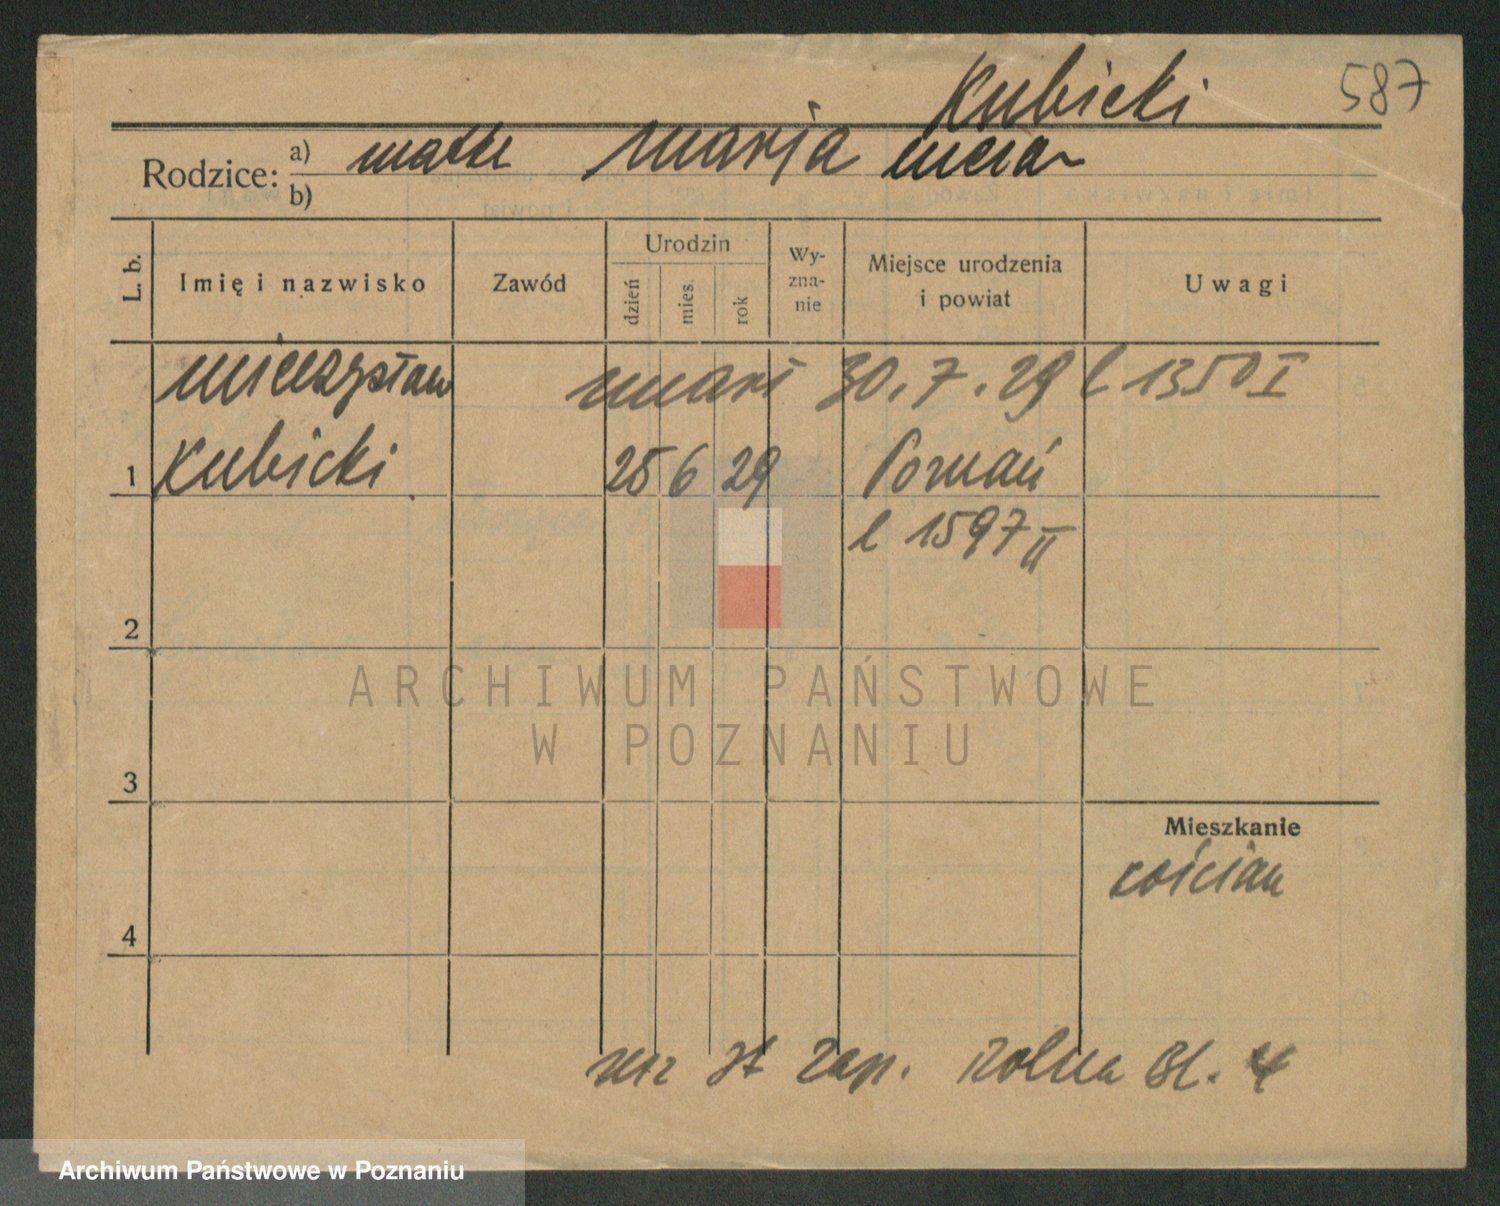 Kubicki
587
Rodzice: a) matka Marja
b)
L. b.
Imię i nazwisko
Zawód
Urodzin
dzień
mies.
rok
Wy-
zna-
nie
Miejsce urodzenia
i powiat
Uwagi
Mieczysław
zmarł 30.7.29 l 1350 I
1 Kubicki 25 6 29 Poznań
l 1597 II
2
ARCHIWUM PAŃSTWOWE
W POZNANIU
3
Mieszkanie
Kościan
4
zap. Rolna 4
Archiwum Państwowe w Poznaniu